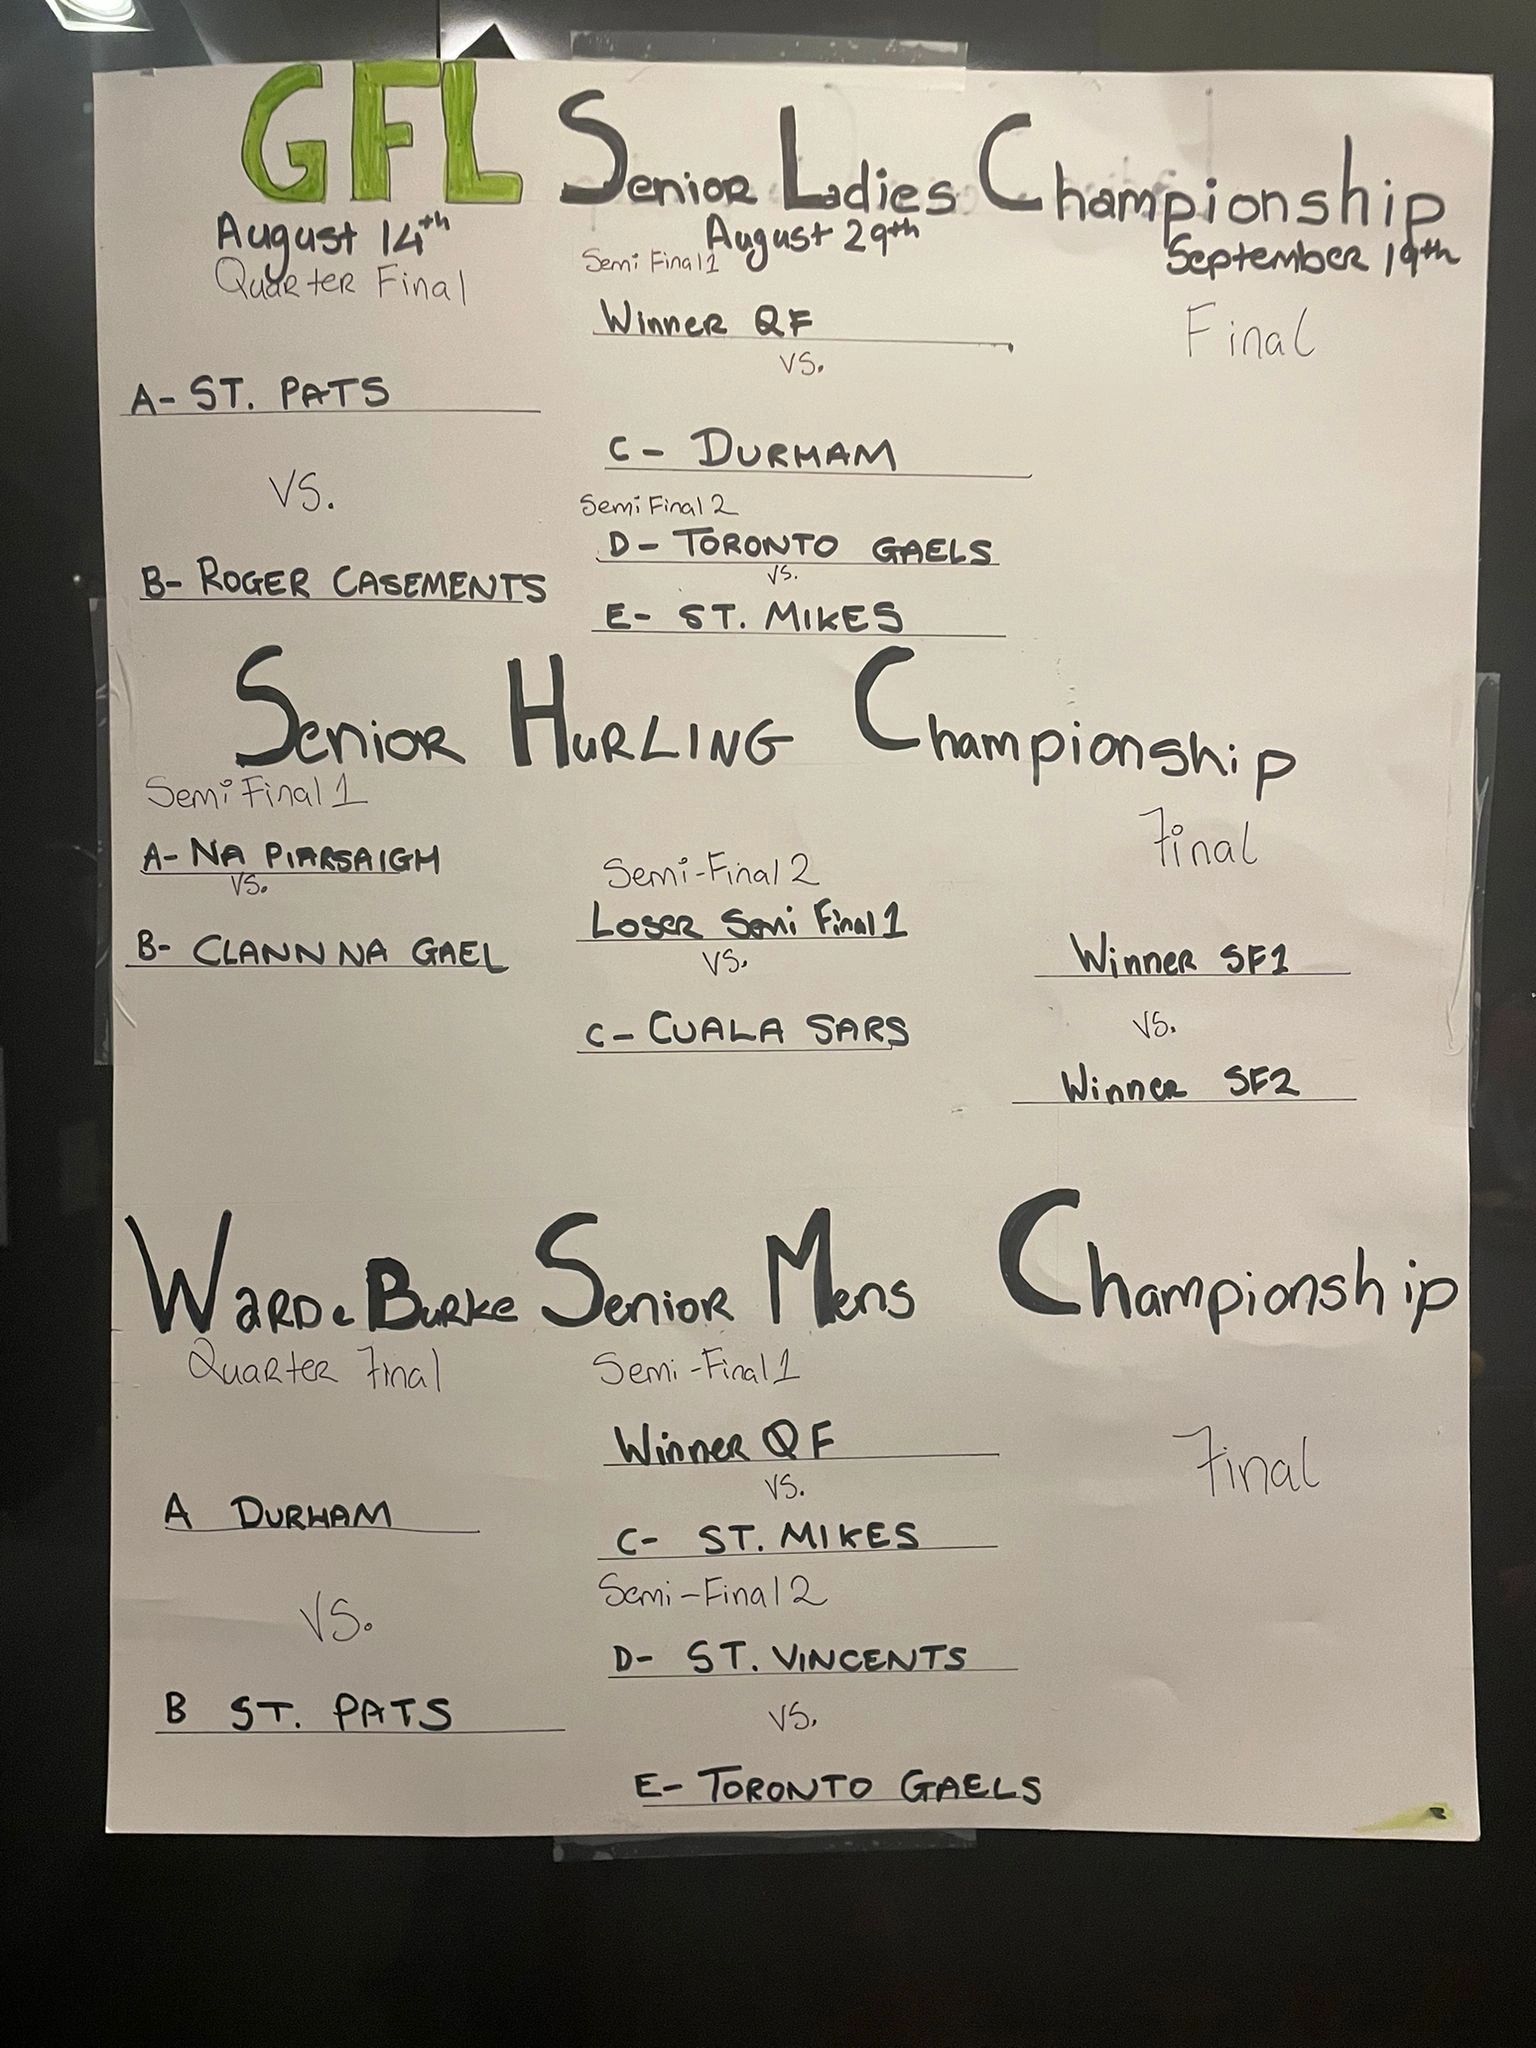 GFL Senior Ladies Championship
August 14th
Quarter Final
A- ST. PATS
VS.
B- ROGER CASEMENTS
August 29th
Semi Final 1
Winner QF
VS.
C- DURHAM
Semi Final 2
D- TORONTO GAELS
VS.
E- ST. MIKES
September 19th
Final
Senior Hurling Championship
Semi Final 1
A- NA PIARSAIGH
VS.
B- CLANN NA GAEL
Semi-Final 2
Loser Semi Final 1
VS.
C- CUALA SARS
Final
Winner SF1
VS.
Winner SF2
Ward & Burke Senior Mens Championship
Quarter Final
A DURHAM
VS.
B ST. PATS
Semi-Final 1
Winner QF
VS.
C- ST. MIKES
Semi-Final 2
D- ST. VINCENTS
VS.
E- TORONTO GAELS
Final